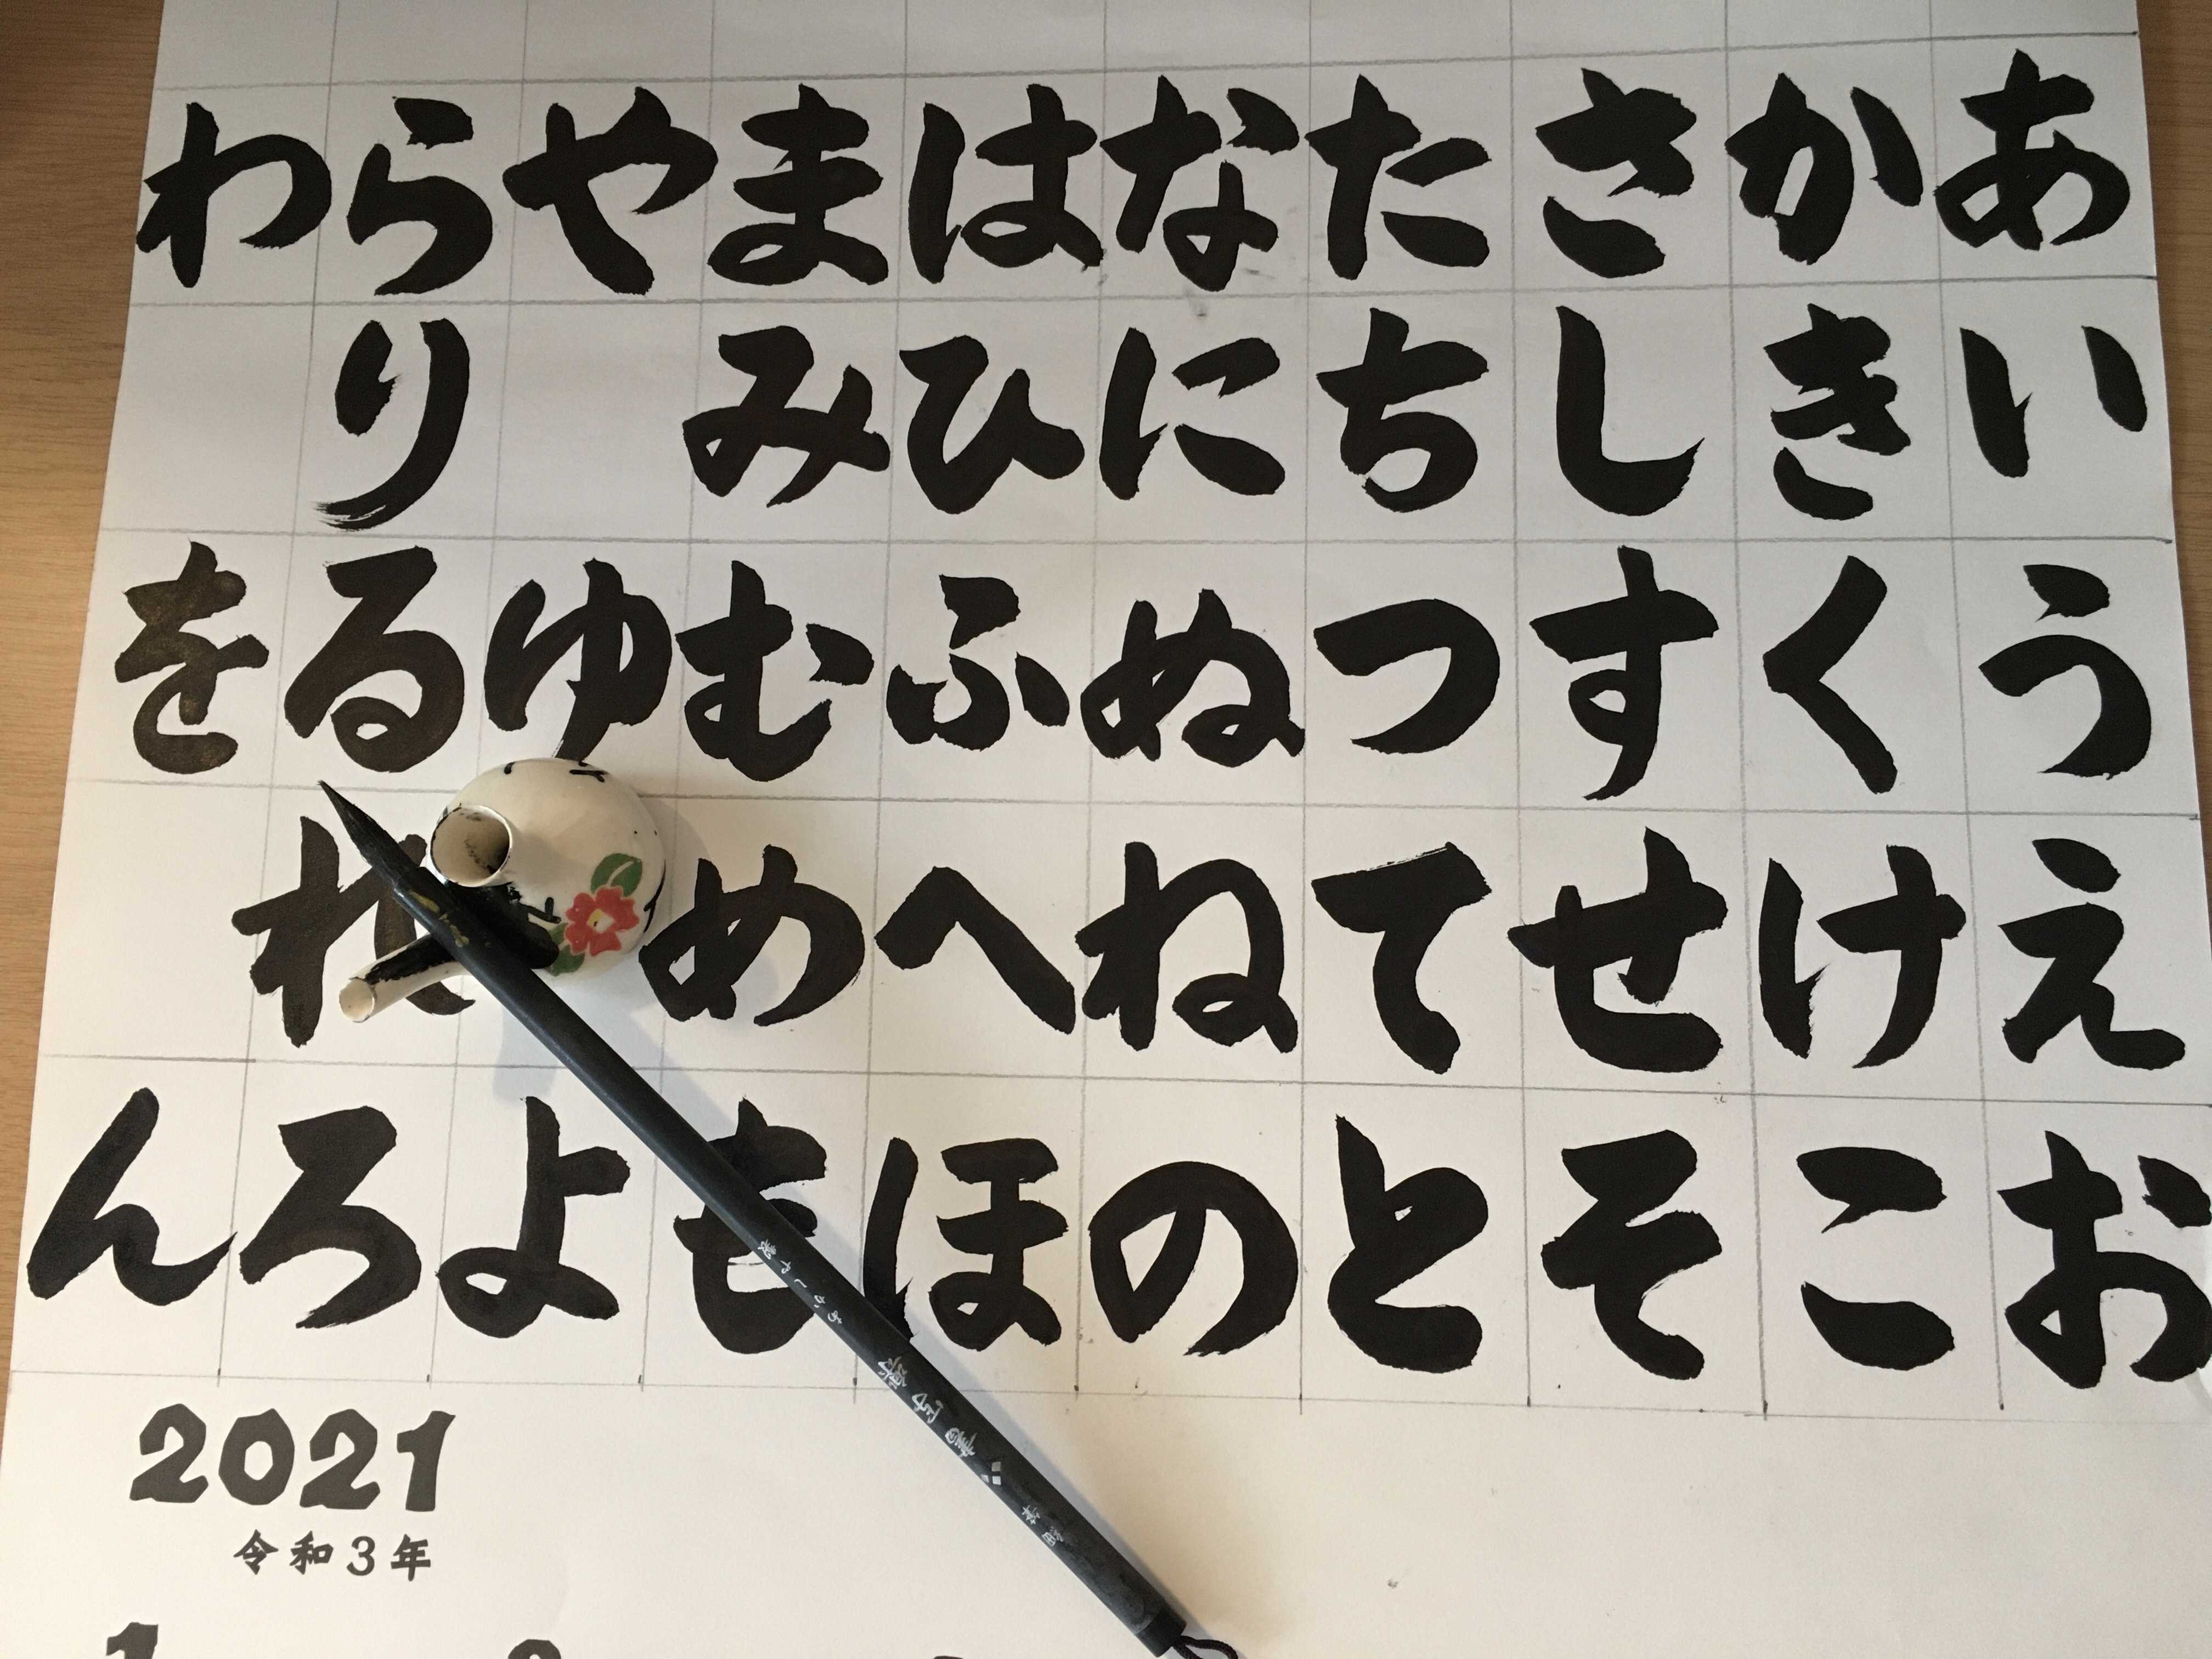 あいうえお
かきくけこ
さしすせそ
たちつてと
なにぬねの
はひふへほ
まみむめも
やゆよ
らりるれろ
わをん
2021
令和3年